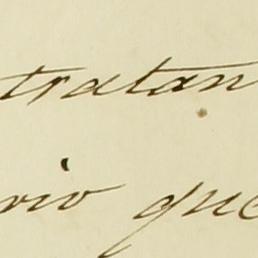 tratan
rio que